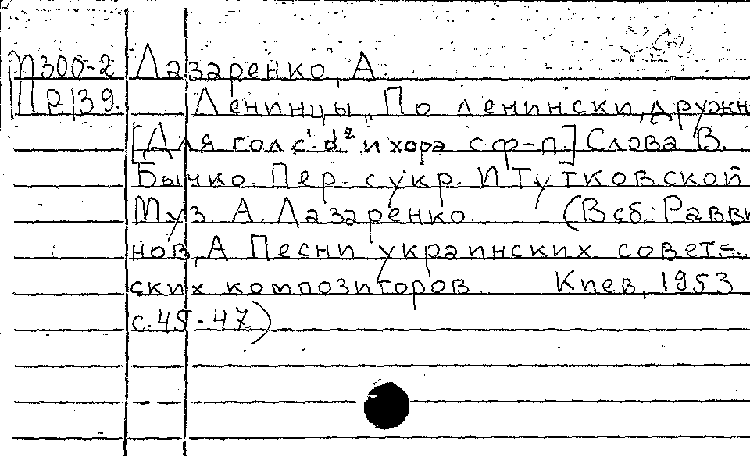 П300-2 Лазаренко, А.
Пр139. Ленинцы. По ленински, дружн
[Для гол с¹-d² и хора с ф-п.] Слова В.
Бычко. Пер. с укр. И Тутковской
Муз. А. Лазаренко. (В сб: Равви
нов, А Песни украинских совет=
ских композиторов. Киев, 1953
с.45-47)